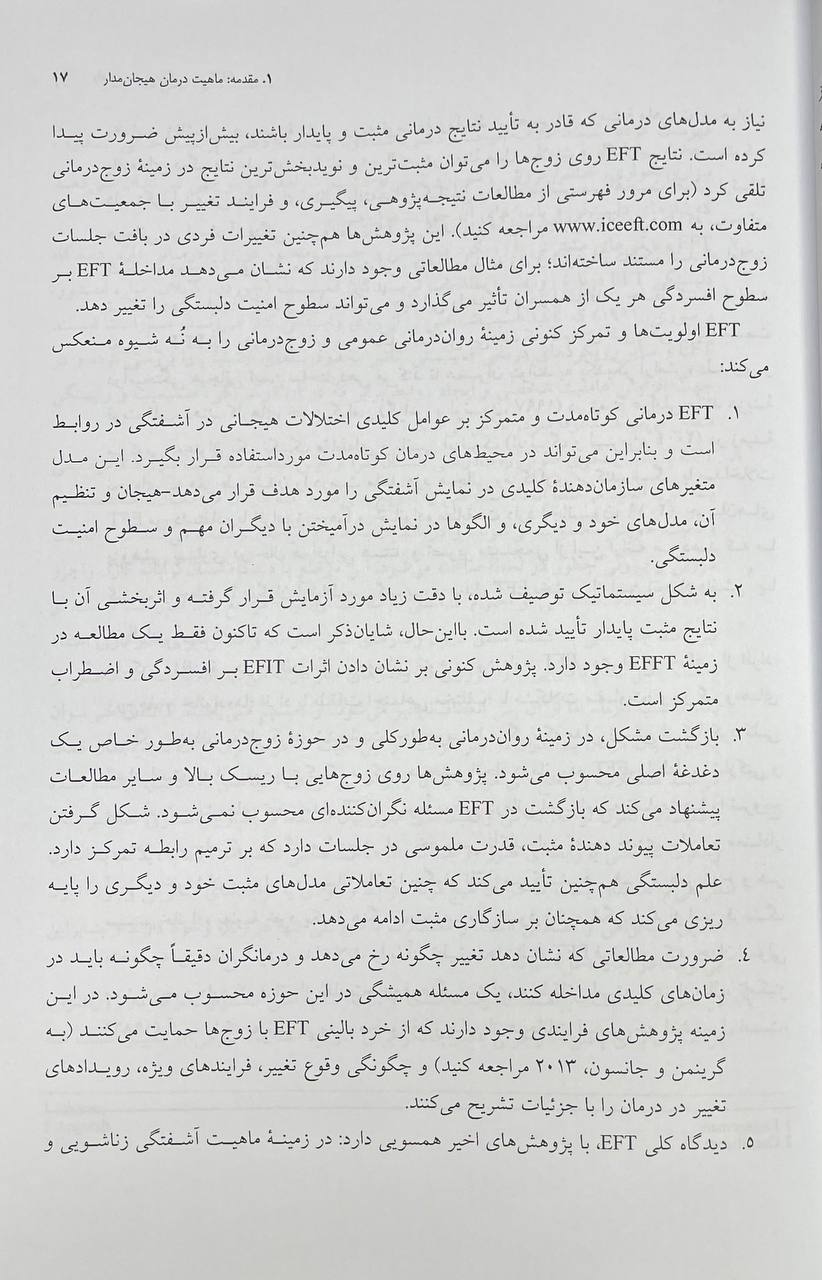 ۱. مقدمه: ماهیت درمان هیجان‌مدار ۱۷
نیاز به مدل‌های درمانی که قادر به تأیید نتایج درمانی مثبت و پایدار باشند، بیش‌ازپیش ضرورت پیدا
کرده است. نتایج EFT روی زوج‌ها را می‌توان مثبت‌ترین و نویدبخش‌ترین نتایج در زمینهٔ زوج‌درمانی
تلقی کرد (برای مرور فهرستی از مطالعات نتیجه‌پژوهی، پیگیری، و فرایند تغییر با جمعیت‌های
متفاوت، به www.iceeft.com مراجعه کنید). این پژوهش‌ها هم‌چنین تغییرات فردی در بافت جلسات
زوج‌درمانی را مستند ساخته‌اند؛ برای مثال مطالعاتی وجود دارند که نشان می‌دهد مداخلهٔ EFT بر
سطوح افسردگی هر یک از همسران تأثیر می‌گذارد و می‌تواند سطوح امنیت دلبستگی را تغییر دهد.
EFT اولویت‌ها و تمرکز کنونی زمینهٔ روان‌درمانی عمومی و زوج‌درمانی را به نُه شیوه منعکس
می‌کند:
۱. EFT درمانی کوتاه‌مدت و متمرکز بر عوامل کلیدی اختلالات هیجانی در آشفتگی در روابط
است و بنابراین می‌تواند در محیط‌های درمان کوتاه‌مدت مورداستفاده قرار بگیرد. این مدل
متغیرهای سازمان‌دهندهٔ کلیدی در نمایش آشفتگی را مورد هدف قرار می‌دهد-هیجان و تنظیم
آن، مدل‌های خود و دیگری، و الگوها در نمایش درآمیختن با دیگران مهم و سطوح امنیت
دلبستگی.
۲. به شکل سیستماتیک توصیف شده، با دقت زیاد مورد آزمایش قرار گرفته و اثربخشی آن با
نتایج مثبت پایدار تأیید شده است. بااین‌حال، شایان‌ذکر است که تاکنون فقط یک مطالعه در
زمینهٔ EFFT وجود دارد. پژوهش کنونی بر نشان دادن اثرات EFIT بر افسردگی و اضطراب
متمرکز است.
۳. بازگشت مشکل، در زمینهٔ روان‌درمانی به‌طورکلی و در حوزهٔ زوج‌درمانی به‌طور خاص یک
دغدغهٔ اصلی محسوب می‌شود. پژوهش‌ها روی زوج‌هایی با ریسک بالا و سایر مطالعات
پیشنهاد می‌کند که بازگشت در EFT مسئله نگران‌کننده‌ای محسوب نمی‌شود. شکل گرفتن
تعاملات پیوند دهندهٔ مثبت، قدرت ملموسی در جلسات دارد که بر ترمیم رابطه تمرکز دارد.
علم دلبستگی هم‌چنین تأیید می‌کند که چنین تعاملاتی مدل‌های مثبت خود و دیگری را پایه
ریزی می‌کند که همچنان بر سازگاری مثبت ادامه می‌دهد.
۴. ضرورت مطالعاتی که نشان دهد تغییر چگونه رخ می‌دهد و درمانگران دقیقاً چگونه باید در
زمان‌های کلیدی مداخله کنند، یک مسئله همیشگی در این حوزه محسوب می‌شود. در این
زمینه پژوهش‌های فرایندی وجود دارند که از خرد بالینی EFT با زوج‌ها حمایت می‌کنند (به
گرینمن و جانسون، ۲۰۱۳ مراجعه کنید) و چگونگی وقوع تغییر، فرایندهای ویژه، رویدادهای
تغییر در درمان را با جزئیات تشریح می‌کنند.
۵. دیدگاه کلی EFT، با پژوهش‌های اخیر همسویی دارد: در زمینهٔ ماهیت آشفتگی زناشویی و